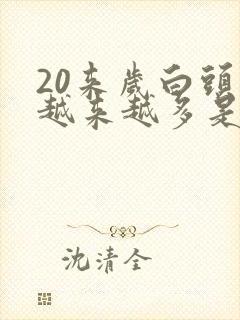 20来歲白頭
越来越多是
沈清全